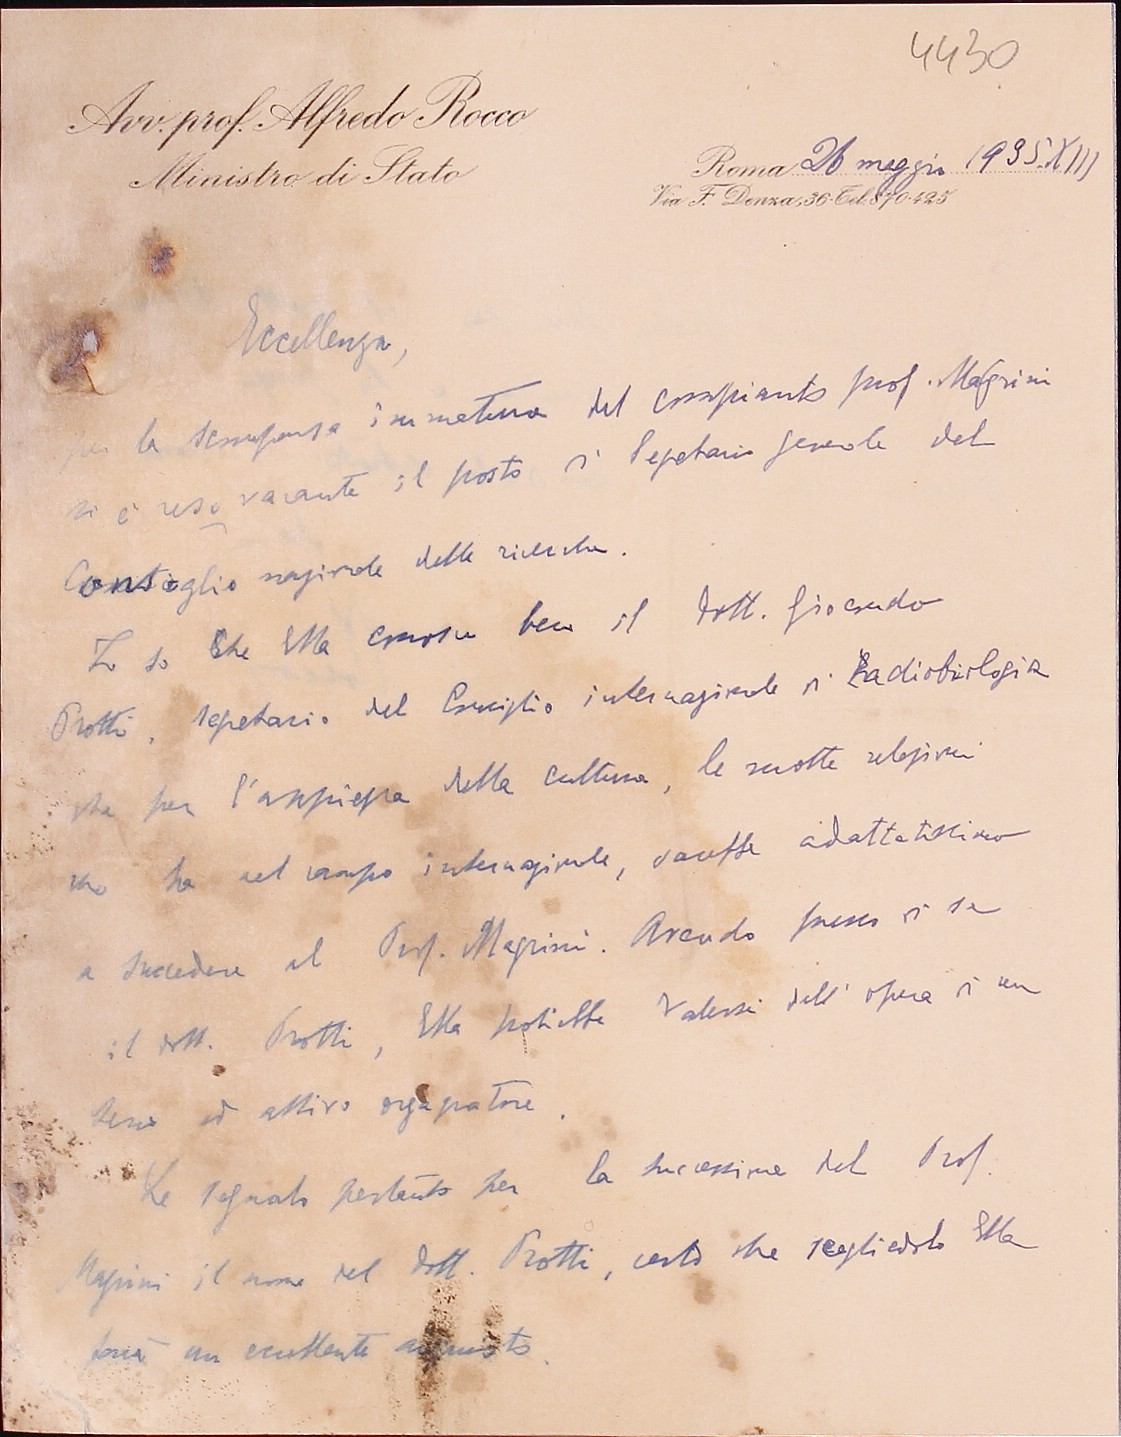 4430
Avv. prof. Alfredo Rocco
Ministro di Stato
Roma 26 maggio 1935.XIII
Via F. Denza, 36-Tel. 870-425
Eccellenza,
per la scomparsa immatura del compianto prof. Magrini
si è reso vacante il posto di Segretario generale del
Consiglio nazionale delle ricerche.
Io so che Ella conosce bene il dott. Giocondo
Protti, segretario del Consiglio internazionale di Radiobiologia
che per l'ampiezza della cultura, le molte relazioni
che ha nel campo internazionale, sarebbe adattatissimo
a succedere al Prof. Magrini. Avendo presso di sé
il dott. Protti, Ella potrebbe valersi dell'opera di un
serio ed attivo organizzatore.
Le segnalo pertanto per la successione del Prof.
Magrini il nome del dott. Protti, certo che scegliendolo Ella
farà un eccellente acquisto.